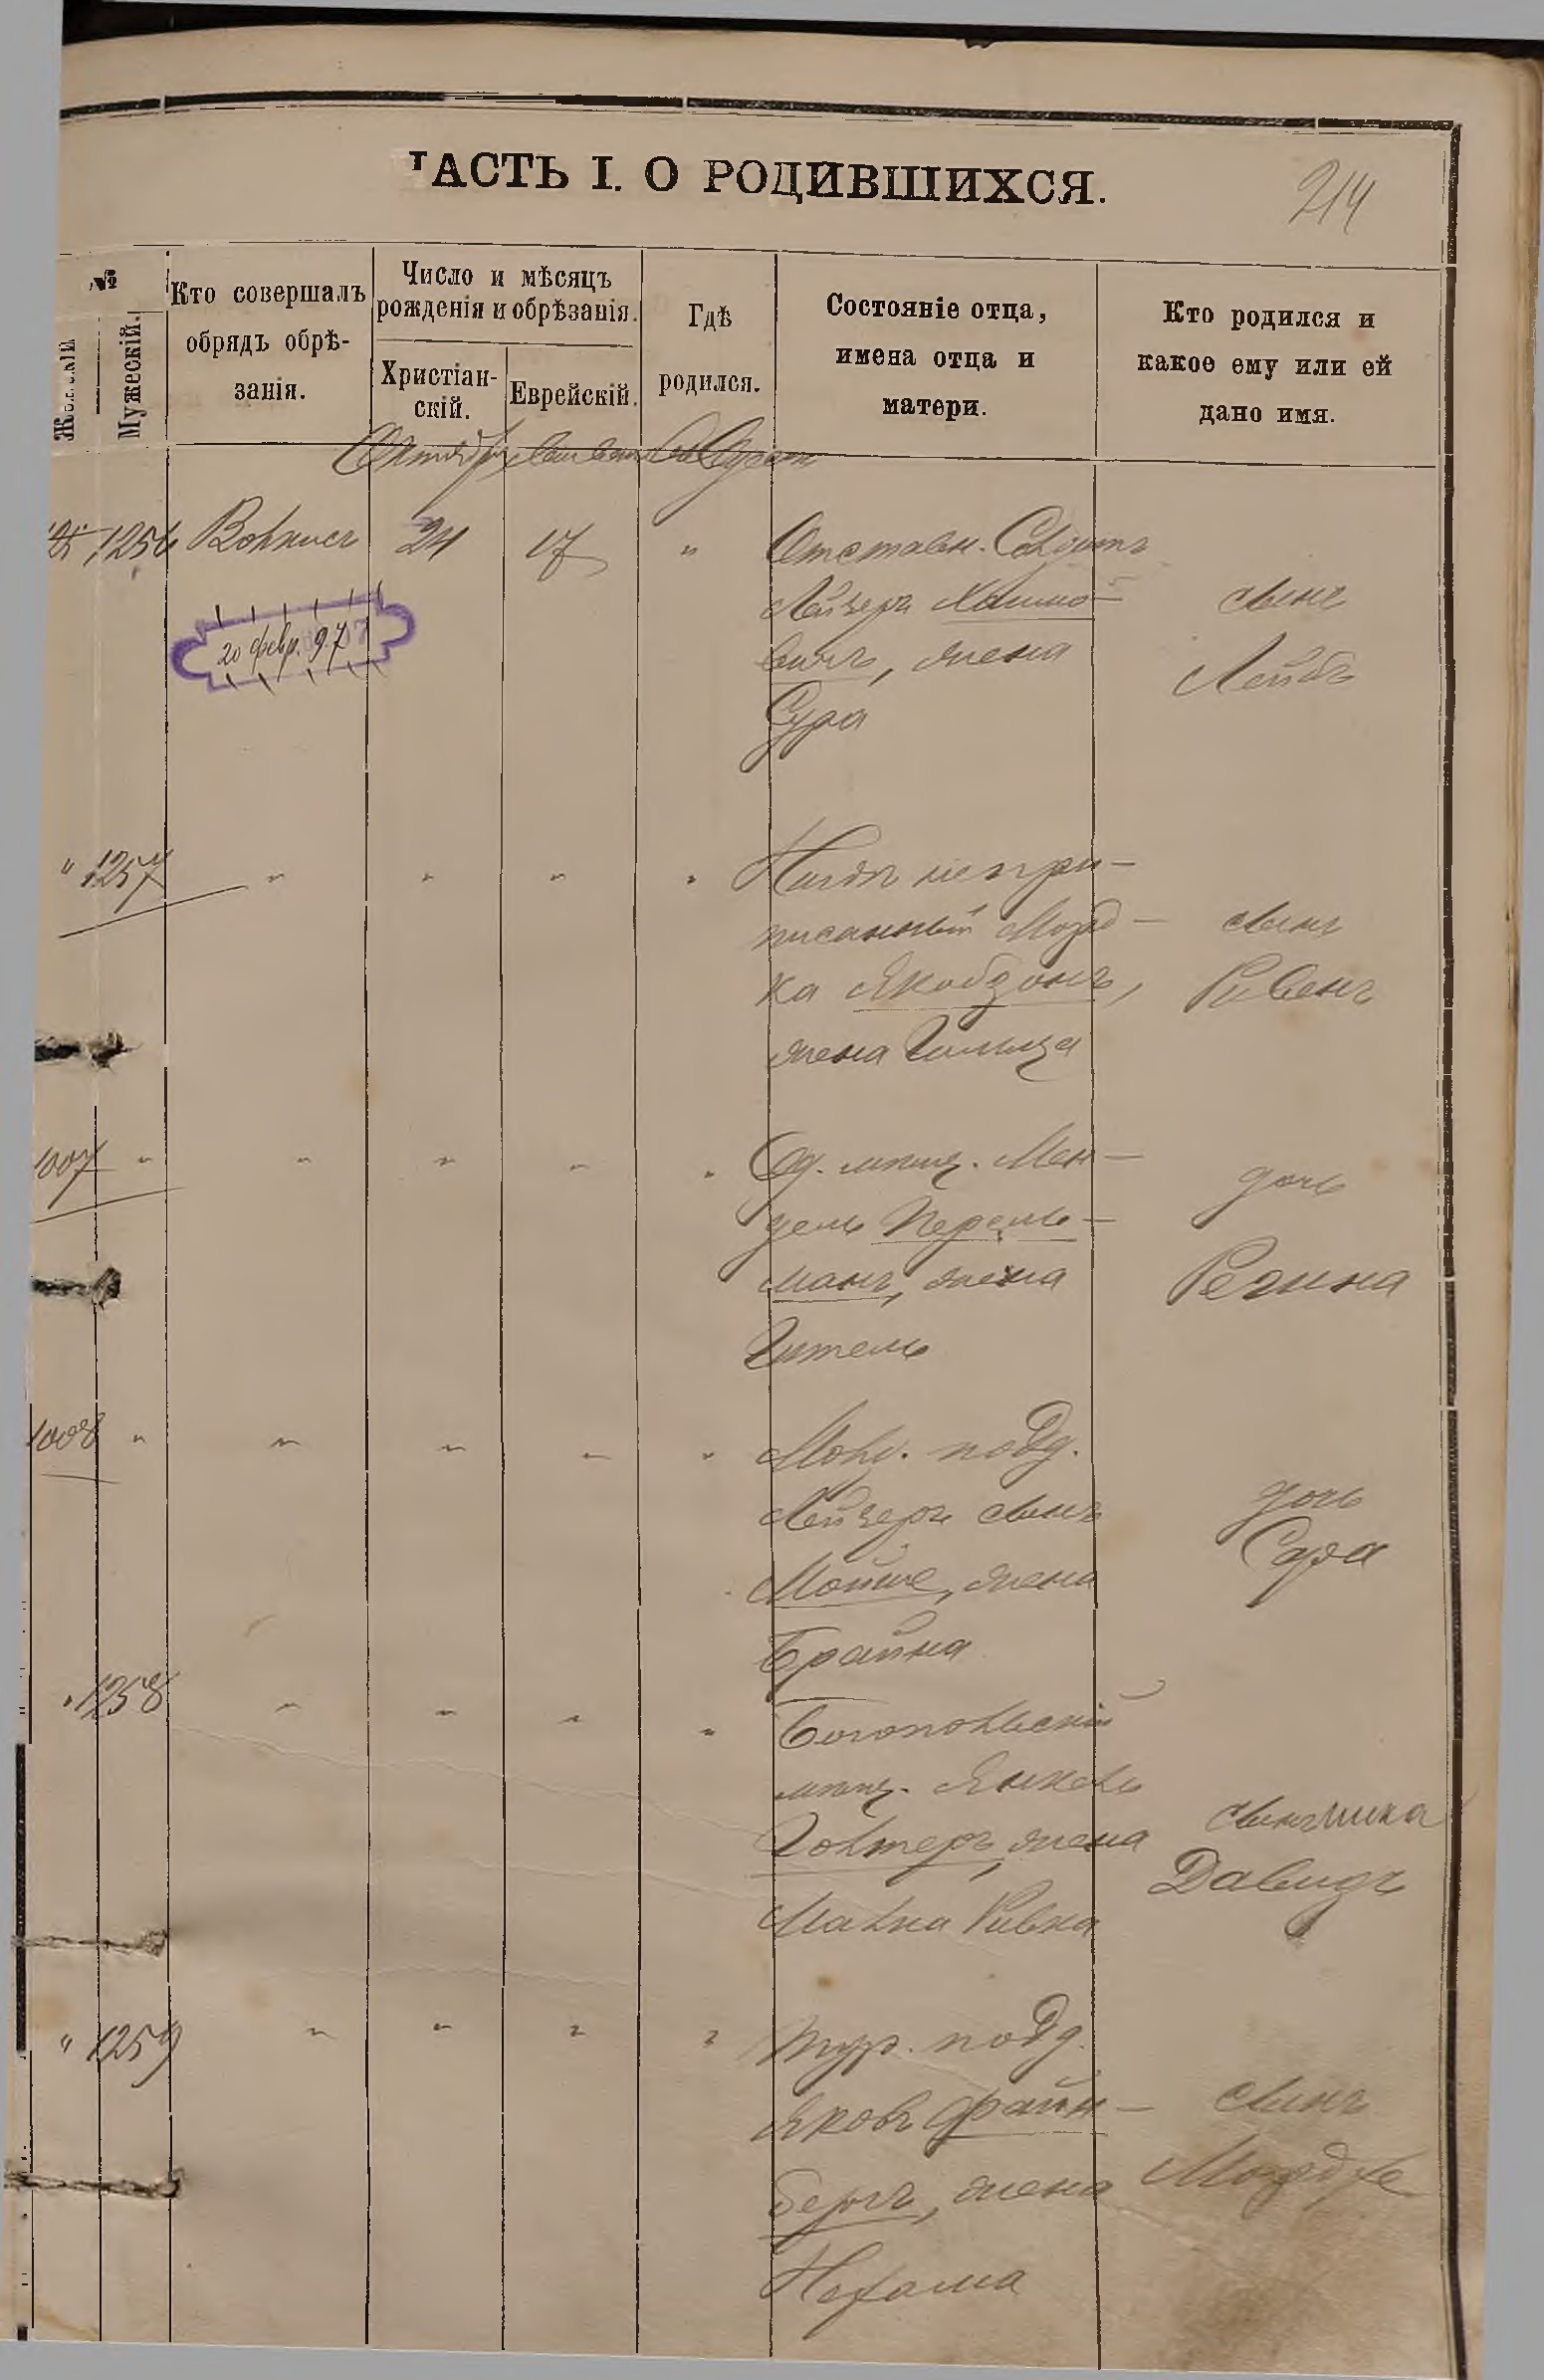 ЧАСТЬ I. О РОДИВШИХСЯ.
214
№
Женскій
Мужескій.
Кто совершалъ
обрядъ обрѣ-
занія.
Число и мѣсяцъ
рожденія и обрѣзанія.
Христіан-
скій.
Еврейскій.
Гдѣ
родился.
Состояніе отца,
имена отца и
матери.
Кто родился и
какое ему или ей
дано имя.
Октябрь
1256 24 17 " Отставн. Солдатъ
Лейзеръ Хаимо-
вичъ, жена
Сура
сынъ
Лейбъ
20 февр. 97
" 1257 " " " " Нигдѣ непри-
писанный Морд-
ка Якобзонъ,
жена
сынъ
Рувенъ
1007 " " " " " Од. мѣщ. Мен-
дель Перель-
манъ, жена
Гитель
дочь
Регина
1008 " " " " " Молд. подд.
Лейзеръ сынъ
Мойше, жена
Брайна
дочь
Сара
" 1258 " " " " Богопольскій
мѣщ. Янкель
Голтеръ, жена
Малка Ривка
сынъ Шика
Давидъ
" 1259 " " " " Тур. подд.
Яковъ Файн-
бергъ, жена
Нехама
сынъ
Мордхе